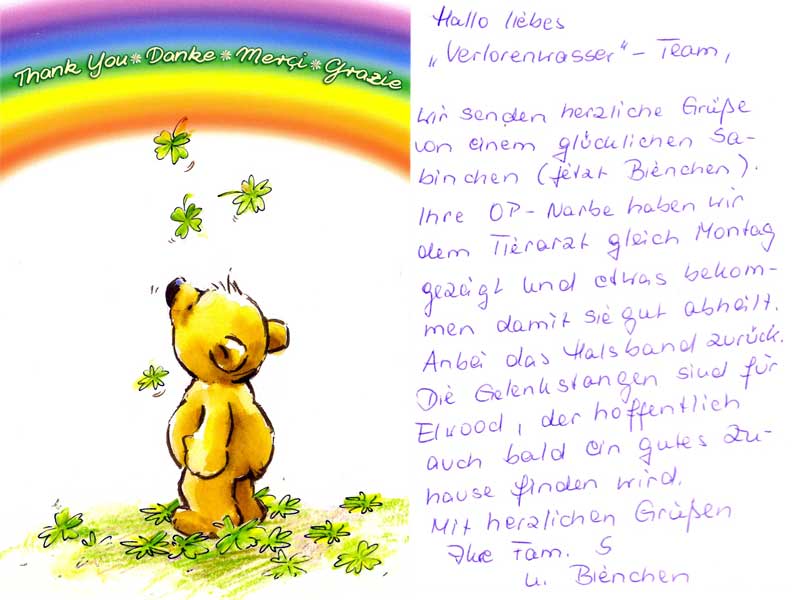 Thank You * Danke * Merçi * Grazie
Hallo liebes
„Verlorenwasser“ - Team,
wir senden herzliche Grüße
von einem glücklichen Sa-
binchen (jetzt Bienchen).
Ihre OP-Narbe haben wir
dem Tierarzt gleich Montag
gezeigt und etwas bekom-
men damit sie gut abheilt.
Anbei das Halsband zurück.
Die Gelenkstangen sind für
Elwood, der hoffentlich
auch bald ein gutes Zu-
hause finden wird.
Mit herzlichen Grüßen
Ihre Fam. S
u. Bienchen